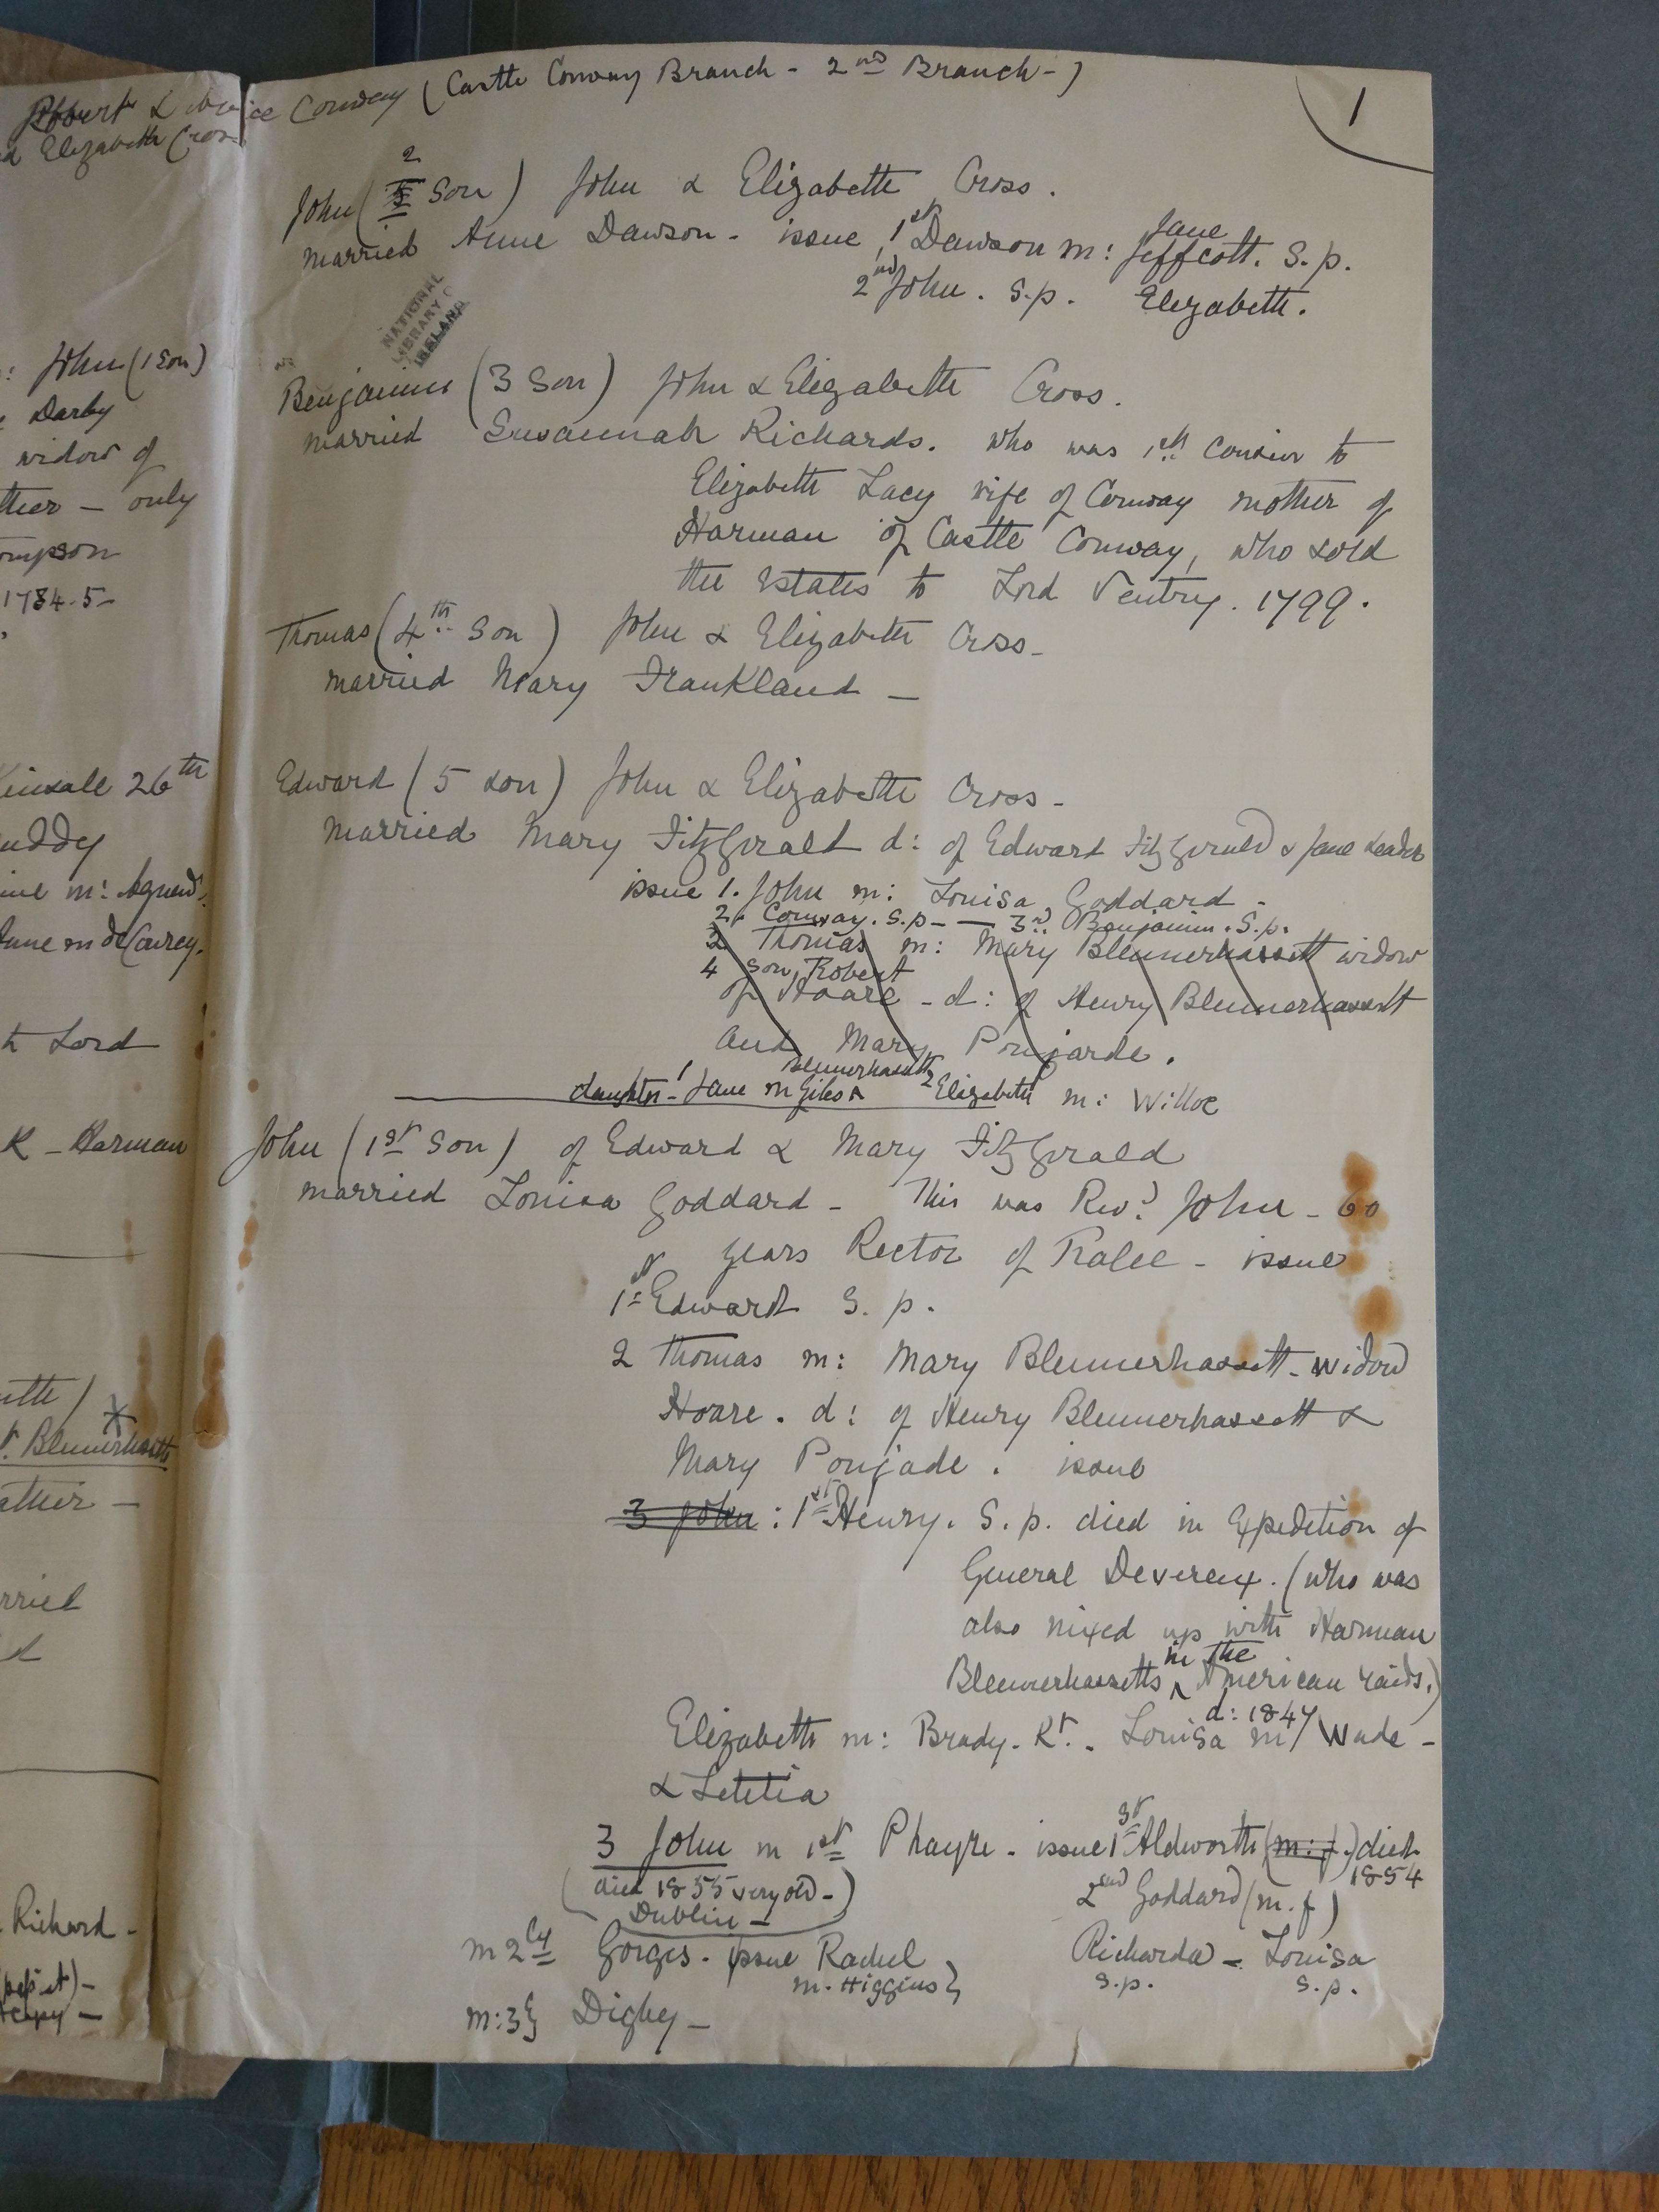 Robert & Alice Conway (Castle Conway Branch - 2nd Branch -)
1
Elizabeth Cross
2
John (5 Son) John & Elizabeth Cross.
married Anne Dawson - issue, 1st Dawson m: Jane Jeffcott. S.p.
2nd John. S.p. Elizabeth.
NATIONAL
LIBRARY OF
IRELAND
Benjamin (3 Son) John & Elizabeth Cross.
married Susannah Richards. who was 1st Cousin to
Elizabeth Lacy wife of Conway mother of
Harman of Castle Conway, who sold
the Estates to Lord Ventry. 1799.
Thomas (4th Son) John & Elizabeth Cross -
married Mary Frankland -
Edward (5 son) John & Elizabeth Cross -
married Mary FitzGerald d: of Edward FitzGerald & Jane Leader
issue 1. John m: Louisa Goddard -
2. Conway. S.p - — 3rd Benjamin. S.p.
2 Thomas m: Mary Blennerhassett widow
4 son, Robert
of Hoare - d: of Henry Blennerhassett
and Mary Poujarde.
daughter - 1 Jane m Giles Blennerhassett 2 Elizabeth m: Willoe
John (1st Son) of Edward & Mary FitzGerald
married Louisa Goddard - This was Revd John - 60
years Rector of Tralee - issue
1st Edward S. p.
2 Thomas m: Mary Blennerhassett - widow
Hoare. d: of Henry Blennerhassett &
Mary Poujade. issue
3 John : 1st Henry. S. p. died in Expedition of
General Devereux. (who was
also mixed up with Harman
Blennerhassetts in the American raids.)
Elizabeth m: Brady. Kt. - Louisa d: 1847 m/ Wade -
& Letitia
3 John m 1st Phayre - issue 1st Aldworth (m: f.) died
1854
(died 1855 very old -)
Dublin -
2nd Goddard (m. f)
m 2ly Gorges - issue Rachel
m. Higgins}
Richarda - Louisa
s.p. s.p.
m: 3} Digby -
: John (1 Son)
Darby
widow of
ther - only
ompson
1784.5 -
Kinsale 26th
uddy
ine m: Agnew.
Jane m de Courcy.
Lord
K - Harman
Blennerhassetts
ather -
rried
Richard -